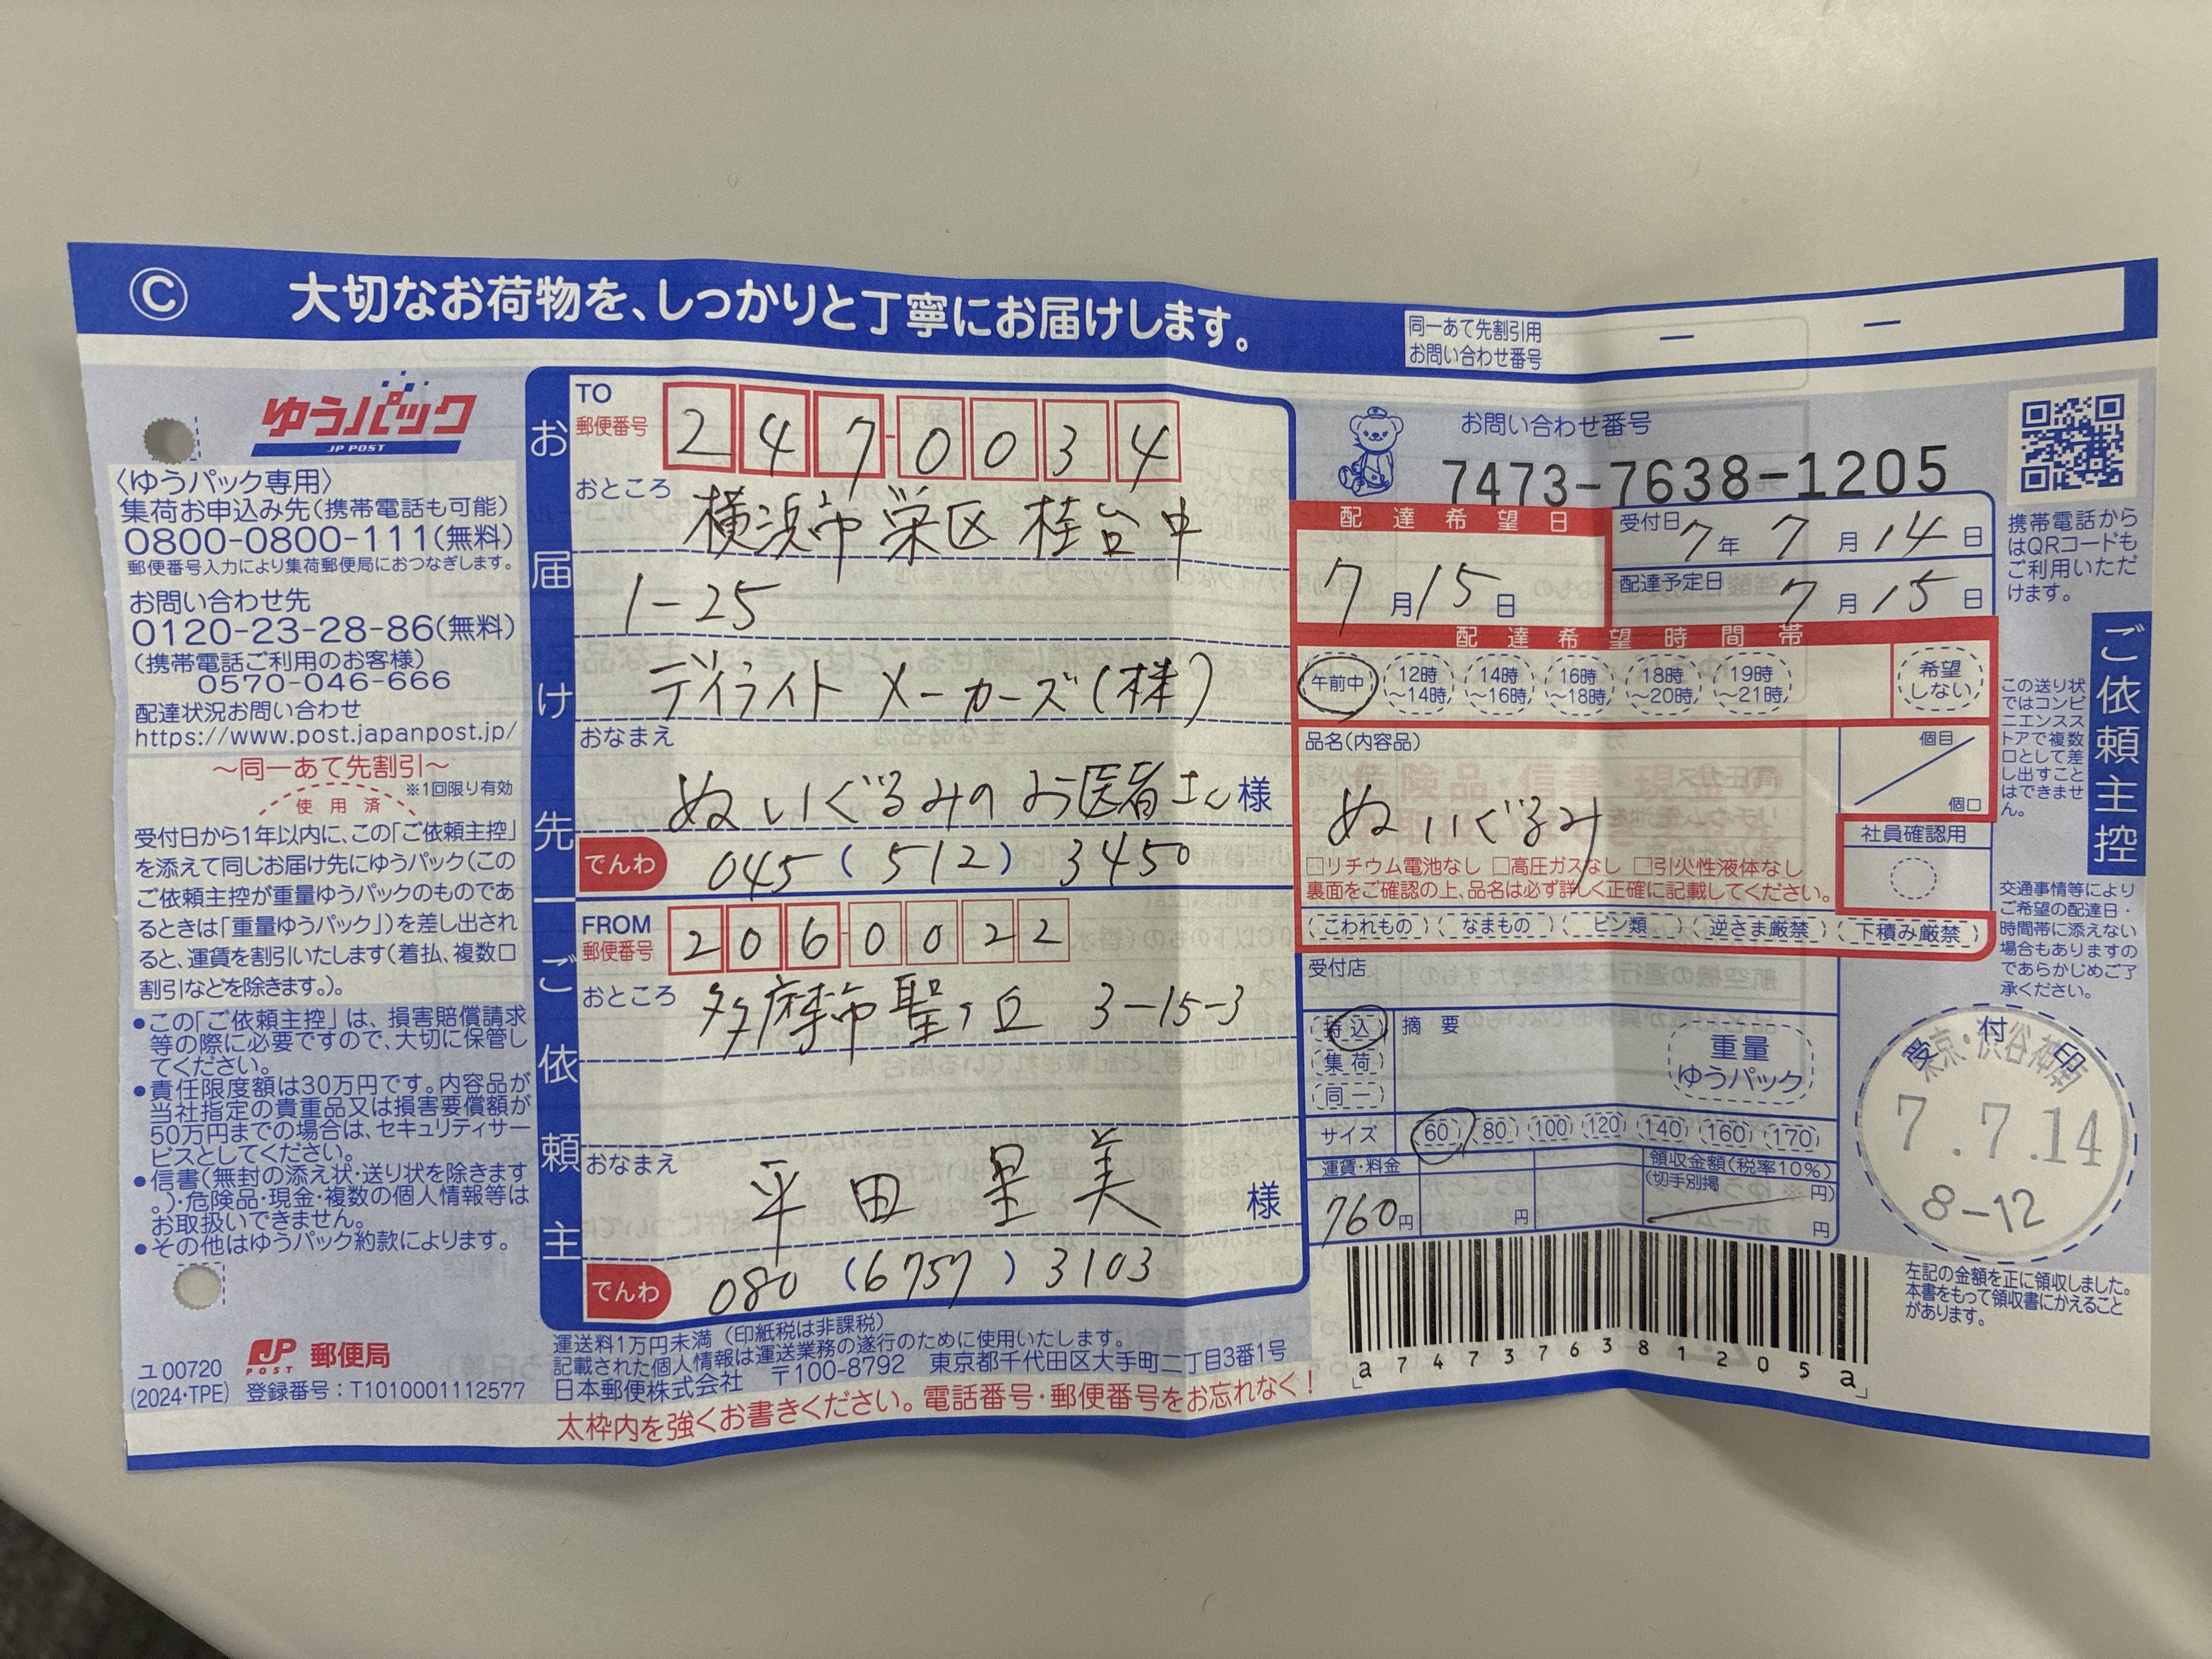 Ⓒ 大切なお荷物を、しっかりと丁寧にお届けします。
同一あて先割引用
お問い合わせ番号
— —
ゆうパック
JP POST
〈ゆうパック専用〉
集荷お申込み先(携帯電話も可能)
0800-0800-111(無料)
郵便番号入力により集荷郵便局におつなぎします。
お問い合わせ先
0120-23-28-86(無料)
(携帯電話ご利用のお客様)
0570-046-666
配達状況お問い合わせ
https://www.post.japanpost.jp/
～同一あて先割引～
※1回限り有効
使用済
受付日から1年以内に、この「ご依頼主控」
を添えて同じお届け先にゆうパック(この
ご依頼主控が重量ゆうパックのものであ
るときは「重量ゆうパック」)を差し出され
ると、運賃を割引いたします(着払、複数口
割引などを除きます。)。
●この「ご依頼主控」は、損害賠償請求
等の際に必要ですので、大切に保管し
てください。
●責任限度額は30万円です。内容品が
当社指定の貴重品又は損害要償額が
50万円までの場合は、セキュリティサー
ビスとしてください。
●信書(無封の添え状・送り状を除きます
。)・危険品・現金・複数の個人情報等は
お取扱いできません。
●その他はゆうパック約款によります。
ユ00720
(2024・TPE)
JP POST 郵便局
登録番号：T1010001112577
お届け先
TO
郵便番号
247-0034
おところ
横浜市栄区桂台中
1-25
デイライトメーカーズ(株)
おなまえ
ぬいぐるみのお医者さん 様
でんわ 045 (512) 3450
ご依頼主
FROM
郵便番号
2060022
おところ
多摩市聖ヶ丘 3-15-3
おなまえ
平田里美 様
でんわ 080 (6757) 3103
運送料1万円未満 (印紙税は非課税)
記載された個人情報は運送業務の遂行のために使用いたします。
日本郵便株式会社 〒100-8792 東京都千代田区大手町二丁目3番1号
太枠内を強くお書きください。電話番号・郵便番号をお忘れなく！
お問い合わせ番号
7473-7638-1205
配達希望日
7月15日
受付日 7年 7月 14日
配達予定日 7月 15日
配達希望時間帯
午前中 12時～14時 14時～16時 16時～18時 18時～20時 19時～21時 希望しない
品名(内容品)
ぬいぐるみ
□リチウム電池なし □高圧ガスなし □引火性液体なし
裏面をご確認の上、品名は必ず詳しく正確に記載してください。
個目
個口
社員確認用
こわれもの なまもの ビン類 逆さま厳禁 下積み厳禁
受付店
持込
集荷
同一
摘要
重量
ゆうパック
サイズ 60 80 100 120 140 160 170
運賃・料金
760円
円
領収金額(税率10%)
(切手別掲 円)
円
a747376381205a
携帯電話から
はQRコードも
ご利用いただ
けます。
ご依頼主控
この送り状
ではコンビ
ニエンスス
トアで複数
口として差
し出すこと
はできませ
ん。
交通事情等により
ご希望の配達日・
時間帯に添えない
場合もありますの
であらかじめご了
承ください。
受付印
東京・渋谷神南
7.7.14
8-12
左記の金額を正に領収しました。
本書をもって領収書にかえること
があります。